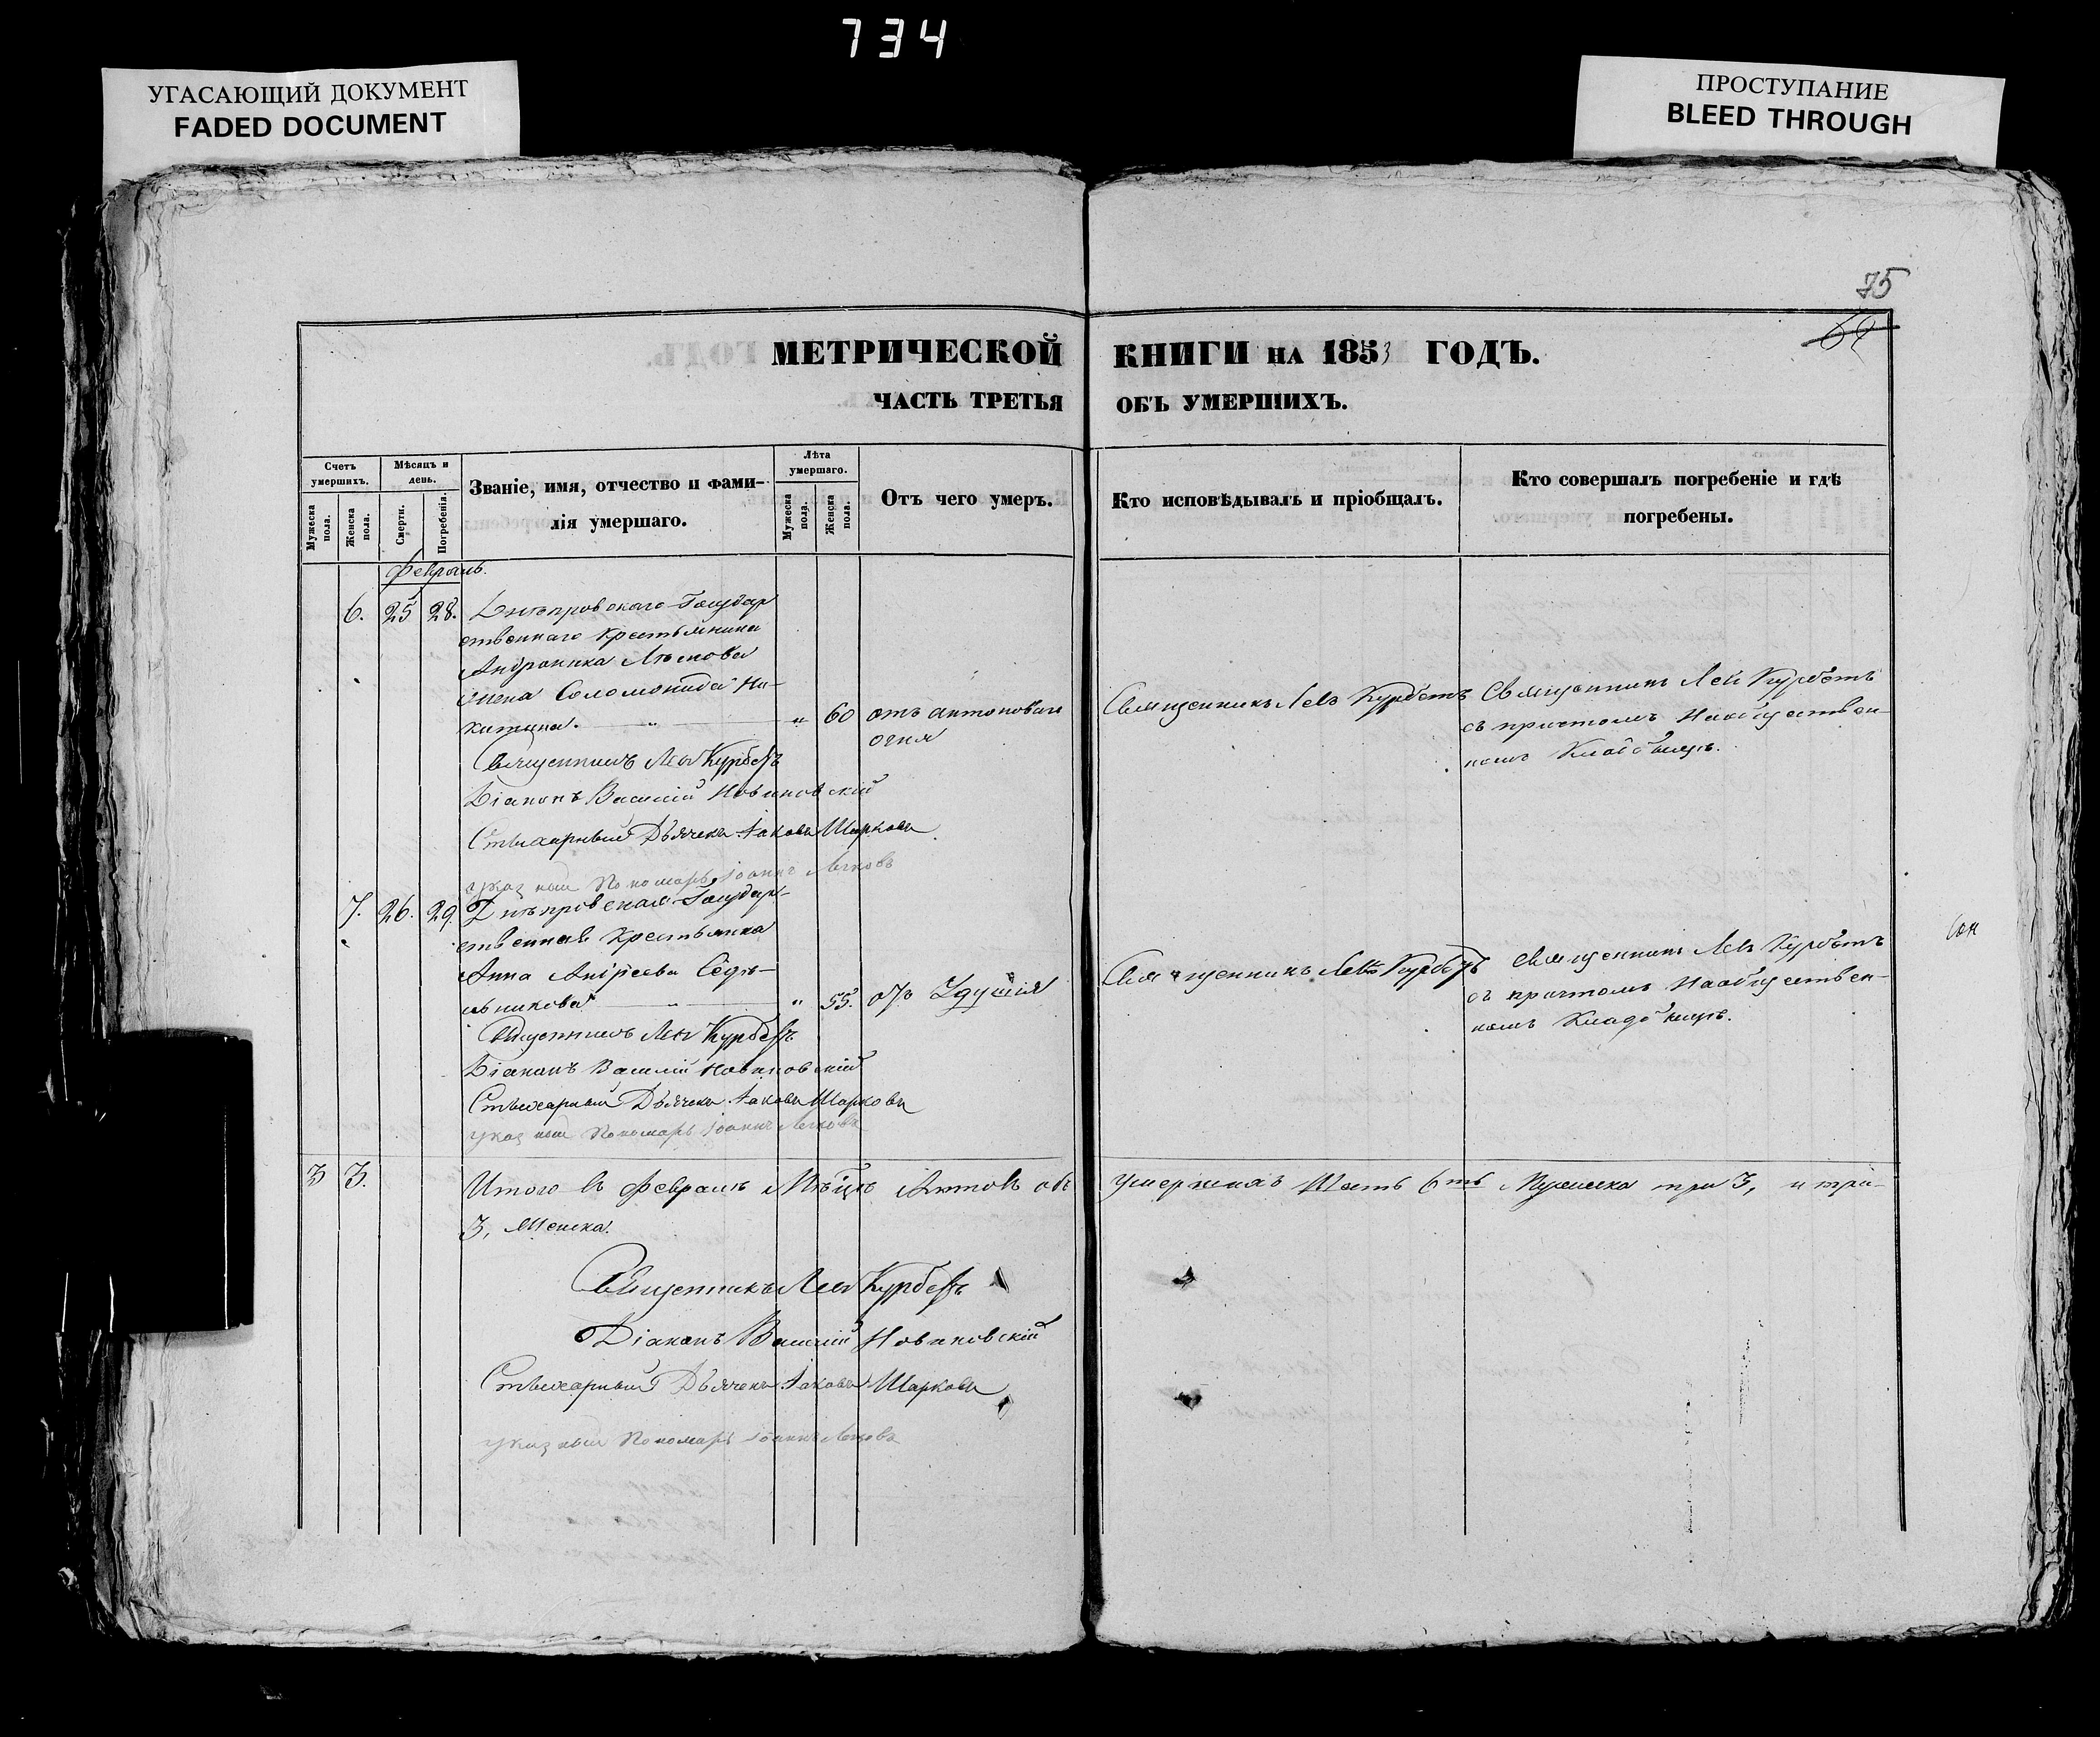 734
УГАСАЮЩИЙ ДОКУМЕНТ
FADED DOCUMENT
ПРОСТУПАНИЕ
BLEED THROUGH
75
МЕТРИЧЕСКОЙ КНИГИ НА 1853 ГОДЪ.
ЧАСТЬ ТРЕТЬЯ ОБЪ УМЕРШИХЪ.
Счетъ умершихъ.
Мужеска пола.
Женска пола.
Мѣсяцъ и день.
Смерти.
Погребенія.
Званіе, имя, отчество и фами-
лія умершаго.
Лѣта умершаго.
Мужеска пола.
Женска пола.
Отъ чего умеръ.
Кто исповѣдывалъ и пріобщалъ.
Кто совершалъ погребеніе и гдѣ
погребены.
Февраль.
6. 25 28. Днѣпровскаго Государ
ственнаго крестьянина
Андроника
жена Соломонида Ни-
китина. " 60 отъ антонова
огня
Священникъ Левъ Курбетъ
Священникъ Левъ Курбетъ
съ причтомъ На общественн-
номъ Кладбищѣ.
Священникъ Левъ Курбетъ
Діаконъ Василій Новиковскій
Стихарный Дьячекъ Іаковъ Шарковъ
указный Пономарь Іоаннъ
7. 26. 29. Днѣпровская Государ-
ственная крестьянка
Анна Андреева Седль-
никова " 55. отъ Удушія
Священникъ Левъ Курбетъ
Священникъ Левъ Курбетъ
съ причтомъ На обществен-
номъ Кладбищѣ.
Священникъ Левъ Курбетъ
Діаконъ Василій Новиковскій
Стихарный Дьячекъ Іаковъ Шарковъ
указный Пономарь Іоаннъ
3 3. Итого въ Февралѣ Мѣсцѣ умершихъ Шесть 6ть Мужеска три 3, и три
3, Женска.
Священникъ Левъ Курбетъ
Діаконъ Василій Новиковскій
Стихарный Дьячекъ Іаковъ Шарковъ
указный Пономарь Іоаннъ